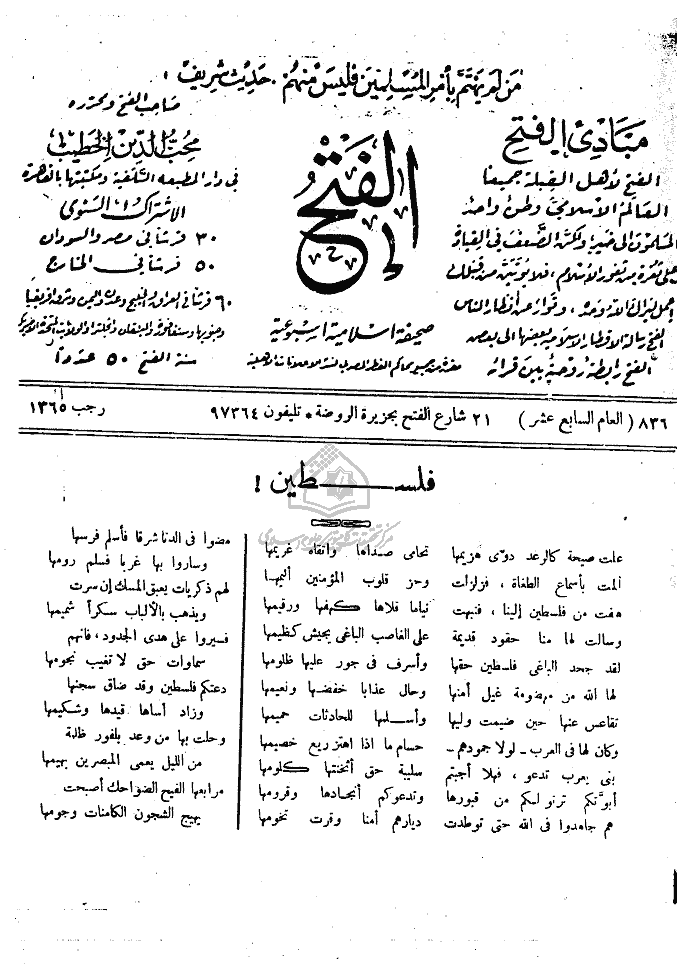 من لم يهتم بأمر المسلمين فليس منهم . حديث شريف
مبادئ الفتح
الفتح لأهل القبلة جميعا
العالم الاسلامي وطن واحد
المسلمون الى خير ولكن الضعف في القيادة
على ثغرة من ثغور الاسلام ، فلا يؤتين من قبلك
الفتح رابطة روحية بين قرائه
الفتح
صحيفة اسلامية أسبوعية
صاحب الفتح ومحرره
محب الدين الخطيب
في دار المطبعة السلفية ومكتبتها بالقاهرة
الاشتراك السنوي
٣٠ قرشا في مصر والسودان
٥٠ قرشا في الخارج
سنة الفتح ٥٠ عددا
٨٣٦ ( العام السابع عشر ) ٢١ شارع الفتح بجزيرة الروضة * تليفون ٩٧٣٦٤ رجب ١٣٦٥
فلسطين !
علت صيحة كالرعد دوّى هزيمها تحامى صداها واتقاه غريمها
ألمت بأسماع الطغاة ، فزلزلت وحز قلوب المؤمنين أليمها
هفت من فلسطين إلينا ، فنبهت نياما فلاها كهفها ورقيمها
وسالت لها منا حقود قديمة على الغاصب الباغي يجيش كظيمها
لقد جحد الباغي فلسطين حقها وأسرف في جور عليها ظلومها
لها الله من مهضومة غيل أمنها وحال عذابا خفضها ونعيمها
تقاعس عنها حين ضيمت وليها وأسلمها للحادثات حميمها
وكان لها في العرب - لولا جمودهم - حسام ما اذا اهتز ريع خصيمها
بني يعرب تدعو ، فهلا أجبتم سليبة حق أثخنتها كلومها
أبوّتكم ترنو لكم من قبورها وتدعوكم أنجادها وقرومها
هم جاهدوا في الله حتى توطدت ديارهم أمنا وقرت تخومها
مضوا في الدنا شرقا فأسلم فرسها
وساروا بها غربا فسلم رومها
لهم ذكريات يعبق المسك إن سرت
ويذهب بالألباب سكراً شميمها
فسيروا على هدى الجدود ، فانهم
سماوات حق لا تغيب نجومها
دعتكم فلسطين وقد ضاق سجنها
وزاد أساها قيدها وشكيمها
وحلت بها من وعد بلفور ظلمة
من الليل يعمى المبصرين بهيمها
مرابعها الفيح الضواحك أصبحت
يهيج الشجون الكامنات وجومها